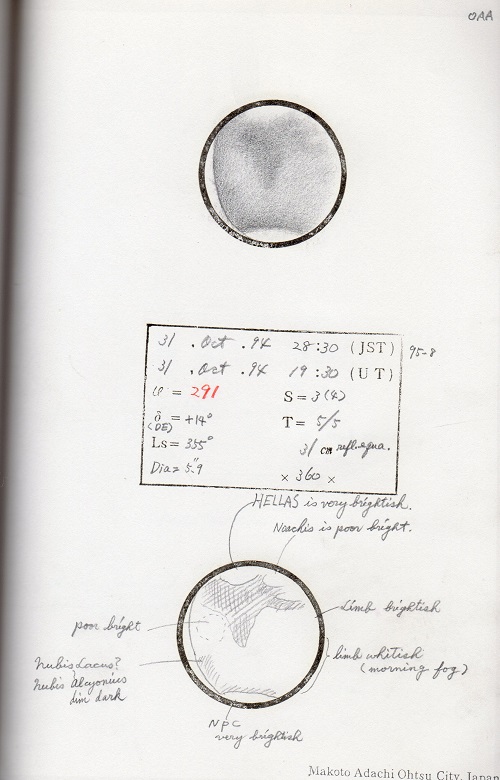 OAA
31 . Oct . 94 28:30 (JST)
95-8
31 . Oct . 94 19:30 (UT)
ω = 291 S = 3(4)
δ = +14° T = 5/5
(DE)
Ls = 355° 31 cm refl.equa.
Dia = 5.″9 × 360 ×
HELLAS is very brightish.
Noachis is poor bright.
Limb brightish
poor bright
limb whitish
(morning fog)
Nubis Lacus?
Nubis Alcyonius
dim dark
NPC
very brightish
Makoto Adachi Ohtsu City, Japan